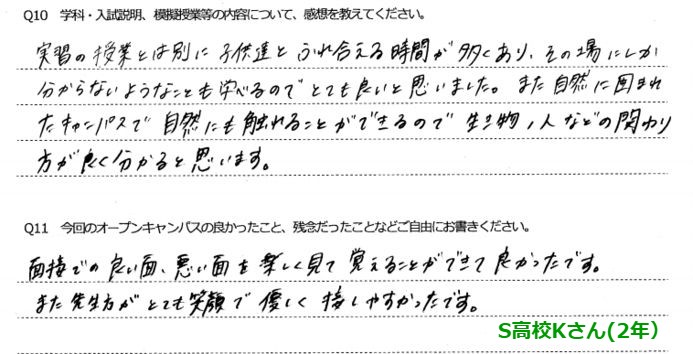 Q10　学科・入試説明、模擬授業等の内容について、感想を教えてください。
実習の授業とは別に子供達とふれ合える時間が多くあり、その場にしか
分からないようなことも学べるのでとても良いと思いました。また自然に囲まれ
たキャンパスで自然にも触れることができるので生き物、人などの関わり
方が良く分かると思います。
Q11　今回のオープンキャンパスの良かったこと、残念だったことなどご自由にお書きください。
面接での良い面、悪い面を楽しく見て覚えることができて良かったです。
また先生方がとても笑顔で優しく接しやすかったです。
S高校Kさん(2年）